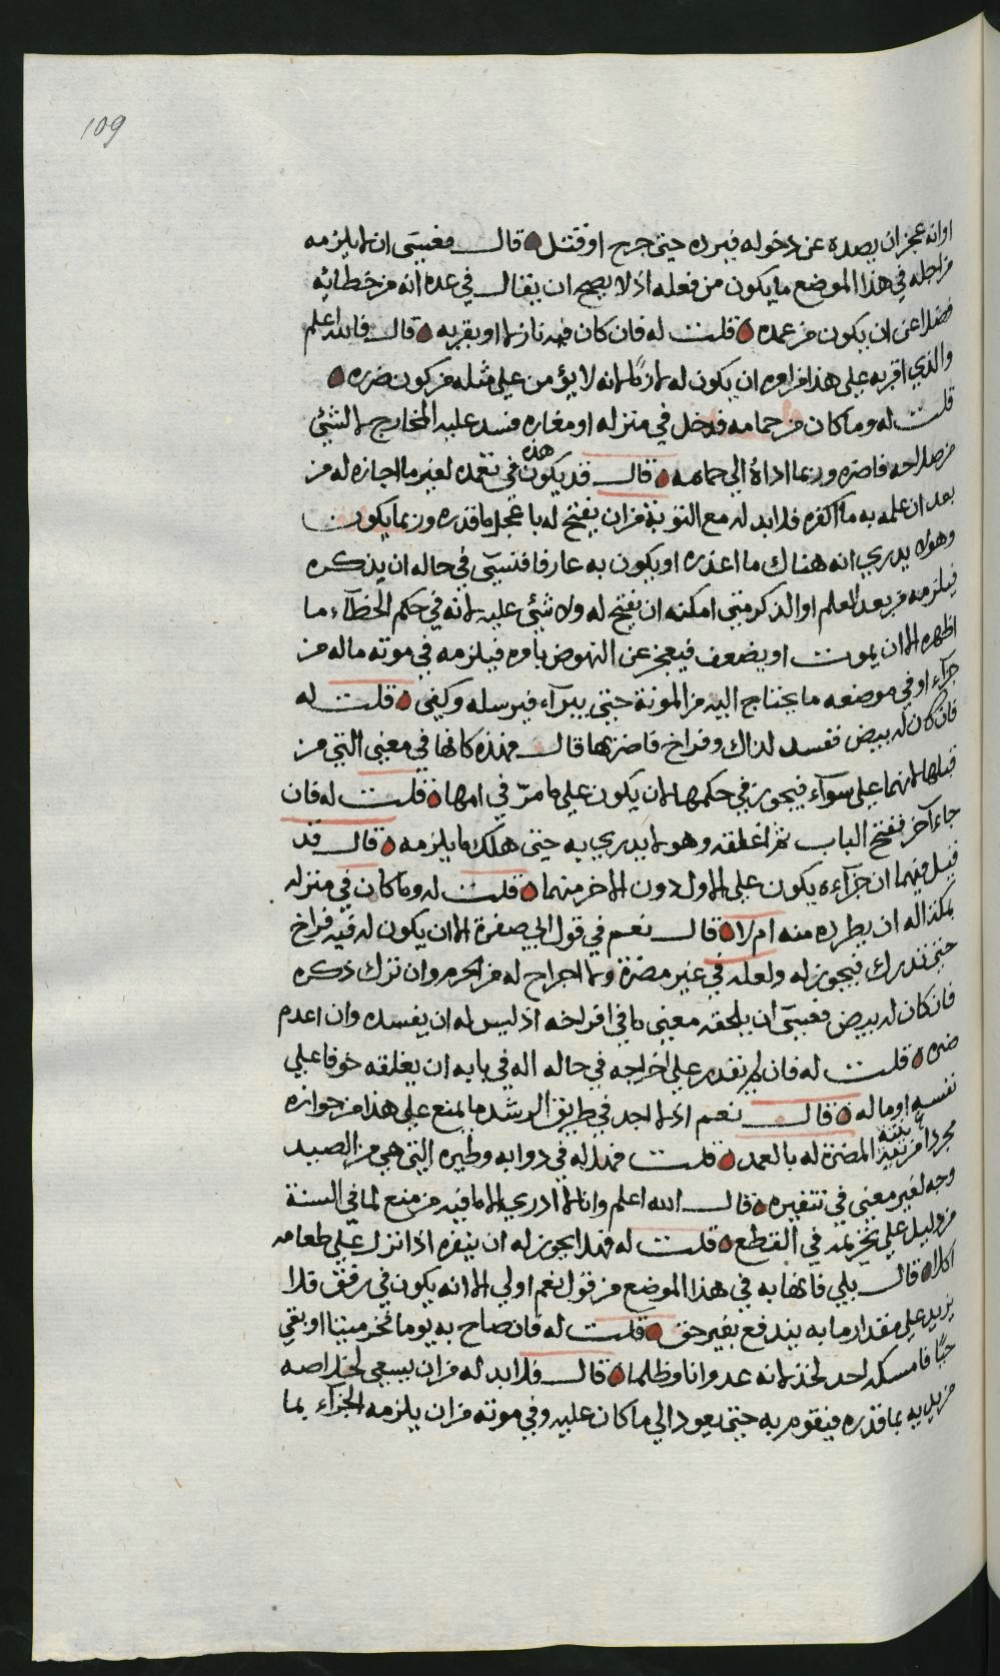 109
او انه عجز ان يصده عن دخوله فيرده حتى جرح او قتل قال فعسى ان لا يلزمه
من اجله في هذا الموضع ما يكون من فعله اذ لا يصح ان يقال في عده انه من خطائه
فضلا عن ان يكون من عمده قلت له فان كان فيه نازلا او بقربه قال فالله اعلم
والذي اقربه على هذا من امره ان يكون له لازما لانه لا يؤمن على مثله من كون ضره
قلت له وما كان من حمامه فدخل في منزله او مغاره فسد عليه المخارج لا لشئ
من صلاحه فاضره وربما اداه الى حمامه قال قد يكون هذه في تعمده لغير ما اجازه له من
بعد ان علمه به ما اكفره فلا بد له مع التوبة من ان يفتح له باعجل ما قدره وربما يكون
وهو لا يدري انه هناك ما اعذره او يكون به عارفا فنسي في حاله ان يذكره
فيلزمه من بعد العلم او الذكر متى امكنه ان يفتح له ولا شئ عليه لانه في حكم الخطآء ما
اظهره الا ان يموت او يضعف فيعجز عن النهوض بامره فيلزمه في موته ما له من
جزآء او في موضعه ما يحتاج اليه من المونة حتى يبرآء فيرسله وكفى قلت له
فان كان له بيض ففسد لذاك وفراخ فاضر بها قال فهذه كانها في معنى التي من
قبلها لانهما على سوآء فيجوز في حكمها لان يكون على ما مر في امها قلت له فان
جاء آخر ففتح الباب ثم اغلقه وهو لا يدري به حتى هلك ما يلزمه قال قد
قيل فيهما ان جزآءه يكون على الاول دون الاخر منهما قلت له وما كان في منزله
يمكنه اله ان يطرده منه ام لا قال نعم في قول ابي صفرة الا ان يكون له فيه فراخ
حتى تدرك فيجوز له ولعله في غير مضرة ولا اخراج له من الحرم وان ترك ذكره
فان كان له بيض فعسى ان يلحقه معنى ما في افراخه اذ ليس له ان يفسده وان اعدم
ضره قلت له فان لم يقدر على اخراجه في حاله اله في بابه ان يغلقه خوفا على
نفسه او ماله قال نعم اذ لا اجد في طريق الرشد ما يمنع على هذا من جوازه
مجردا من نيته المضرة له بالعمد قلت فهل له في دوابه وطيره التي هي من الصيد
وجه لغير معنى في تنفيره قال الله اعلم وانا لا ادري الا ما فيه من منع لما في السنة
من دليل على تحريمه في القطع قلت له فهل يجوز له ان ينفره اذا نزل على طعامه
اكلا قال بلى فانها به في هذا الموضع من قول نعم اولى الا انه يكون في رفق فلا
يزيد على مقدار ما به يندفع بغير حق قلت له فان صاح به يوما فخر ميتا او بقي
حيا فامسكه احد لخذلانه عدوانا وظلما قال فلا بد له من ان يسعى لخلاصه
من يديه بما قدره فيقوم به حتى يعود الى ما كان عليه وفي موته من ان يلزمه الجزآء بما